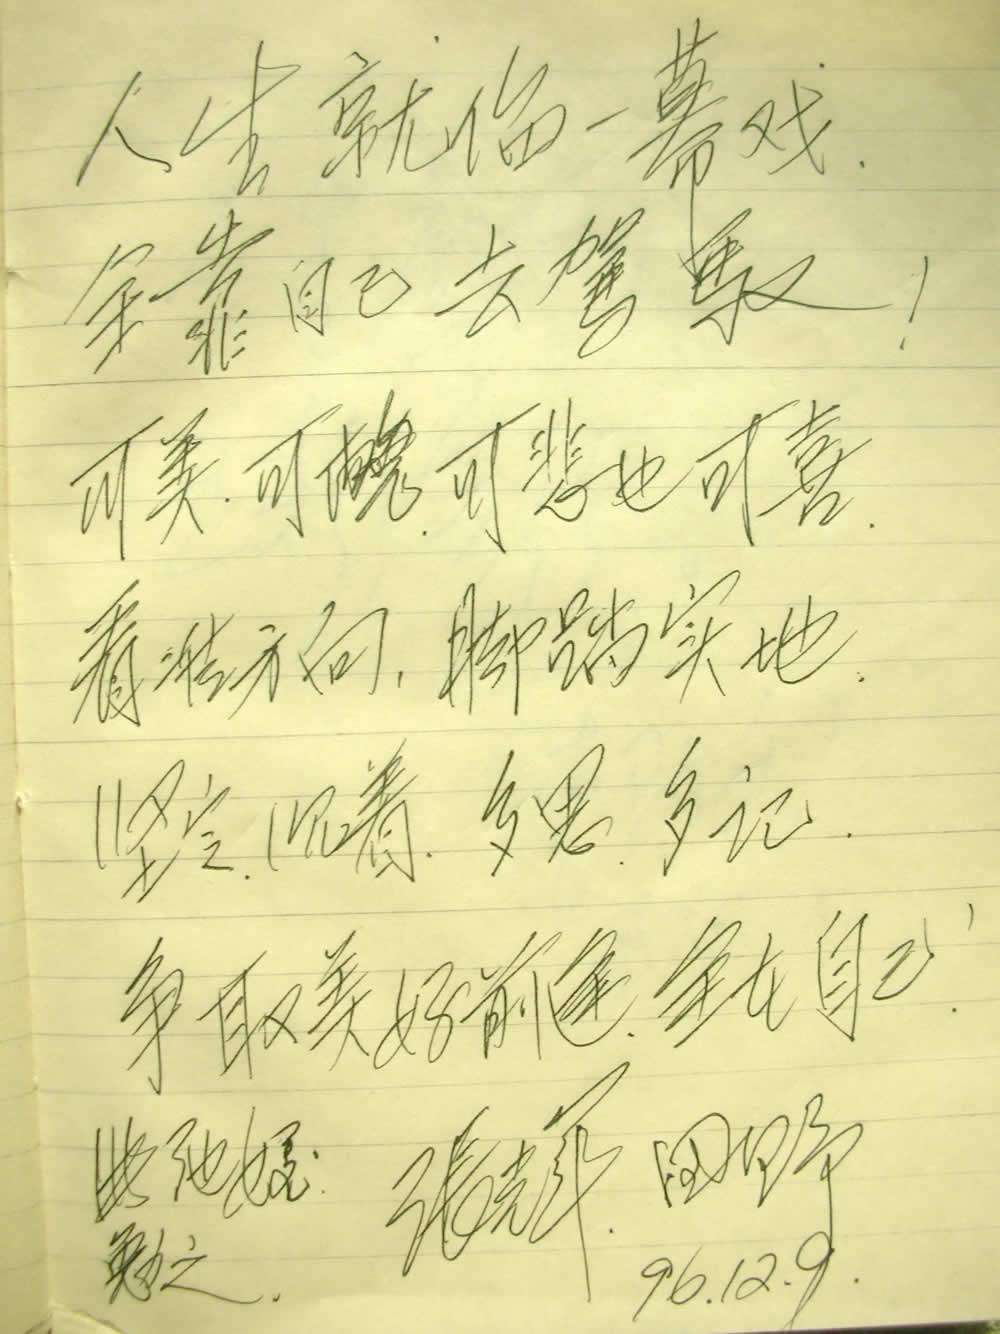 人生就像一幕戏.
全靠自己去驾驭!
可美.可醜.可悲也可喜.
看准方向,脚踏实地.
坚定.沉着.多思.多记.
争取美好前途.全在自己!
与池媛.
勉之.
田野
96.12.9.